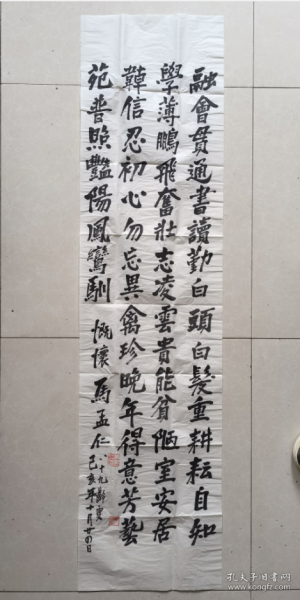 融會貫通書讀勤白頭白髮重耕耘自知
學薄鵬飛奮壯志凌雲貴能貧陋室安居
韓信忍初心勿忘異禽珍晚年得意芳藝
苑普照豔陽鳳鸞馴 慨懷 馬孟仁
八十九歲叟
己亥年十月廿四日
孔夫子旧书网